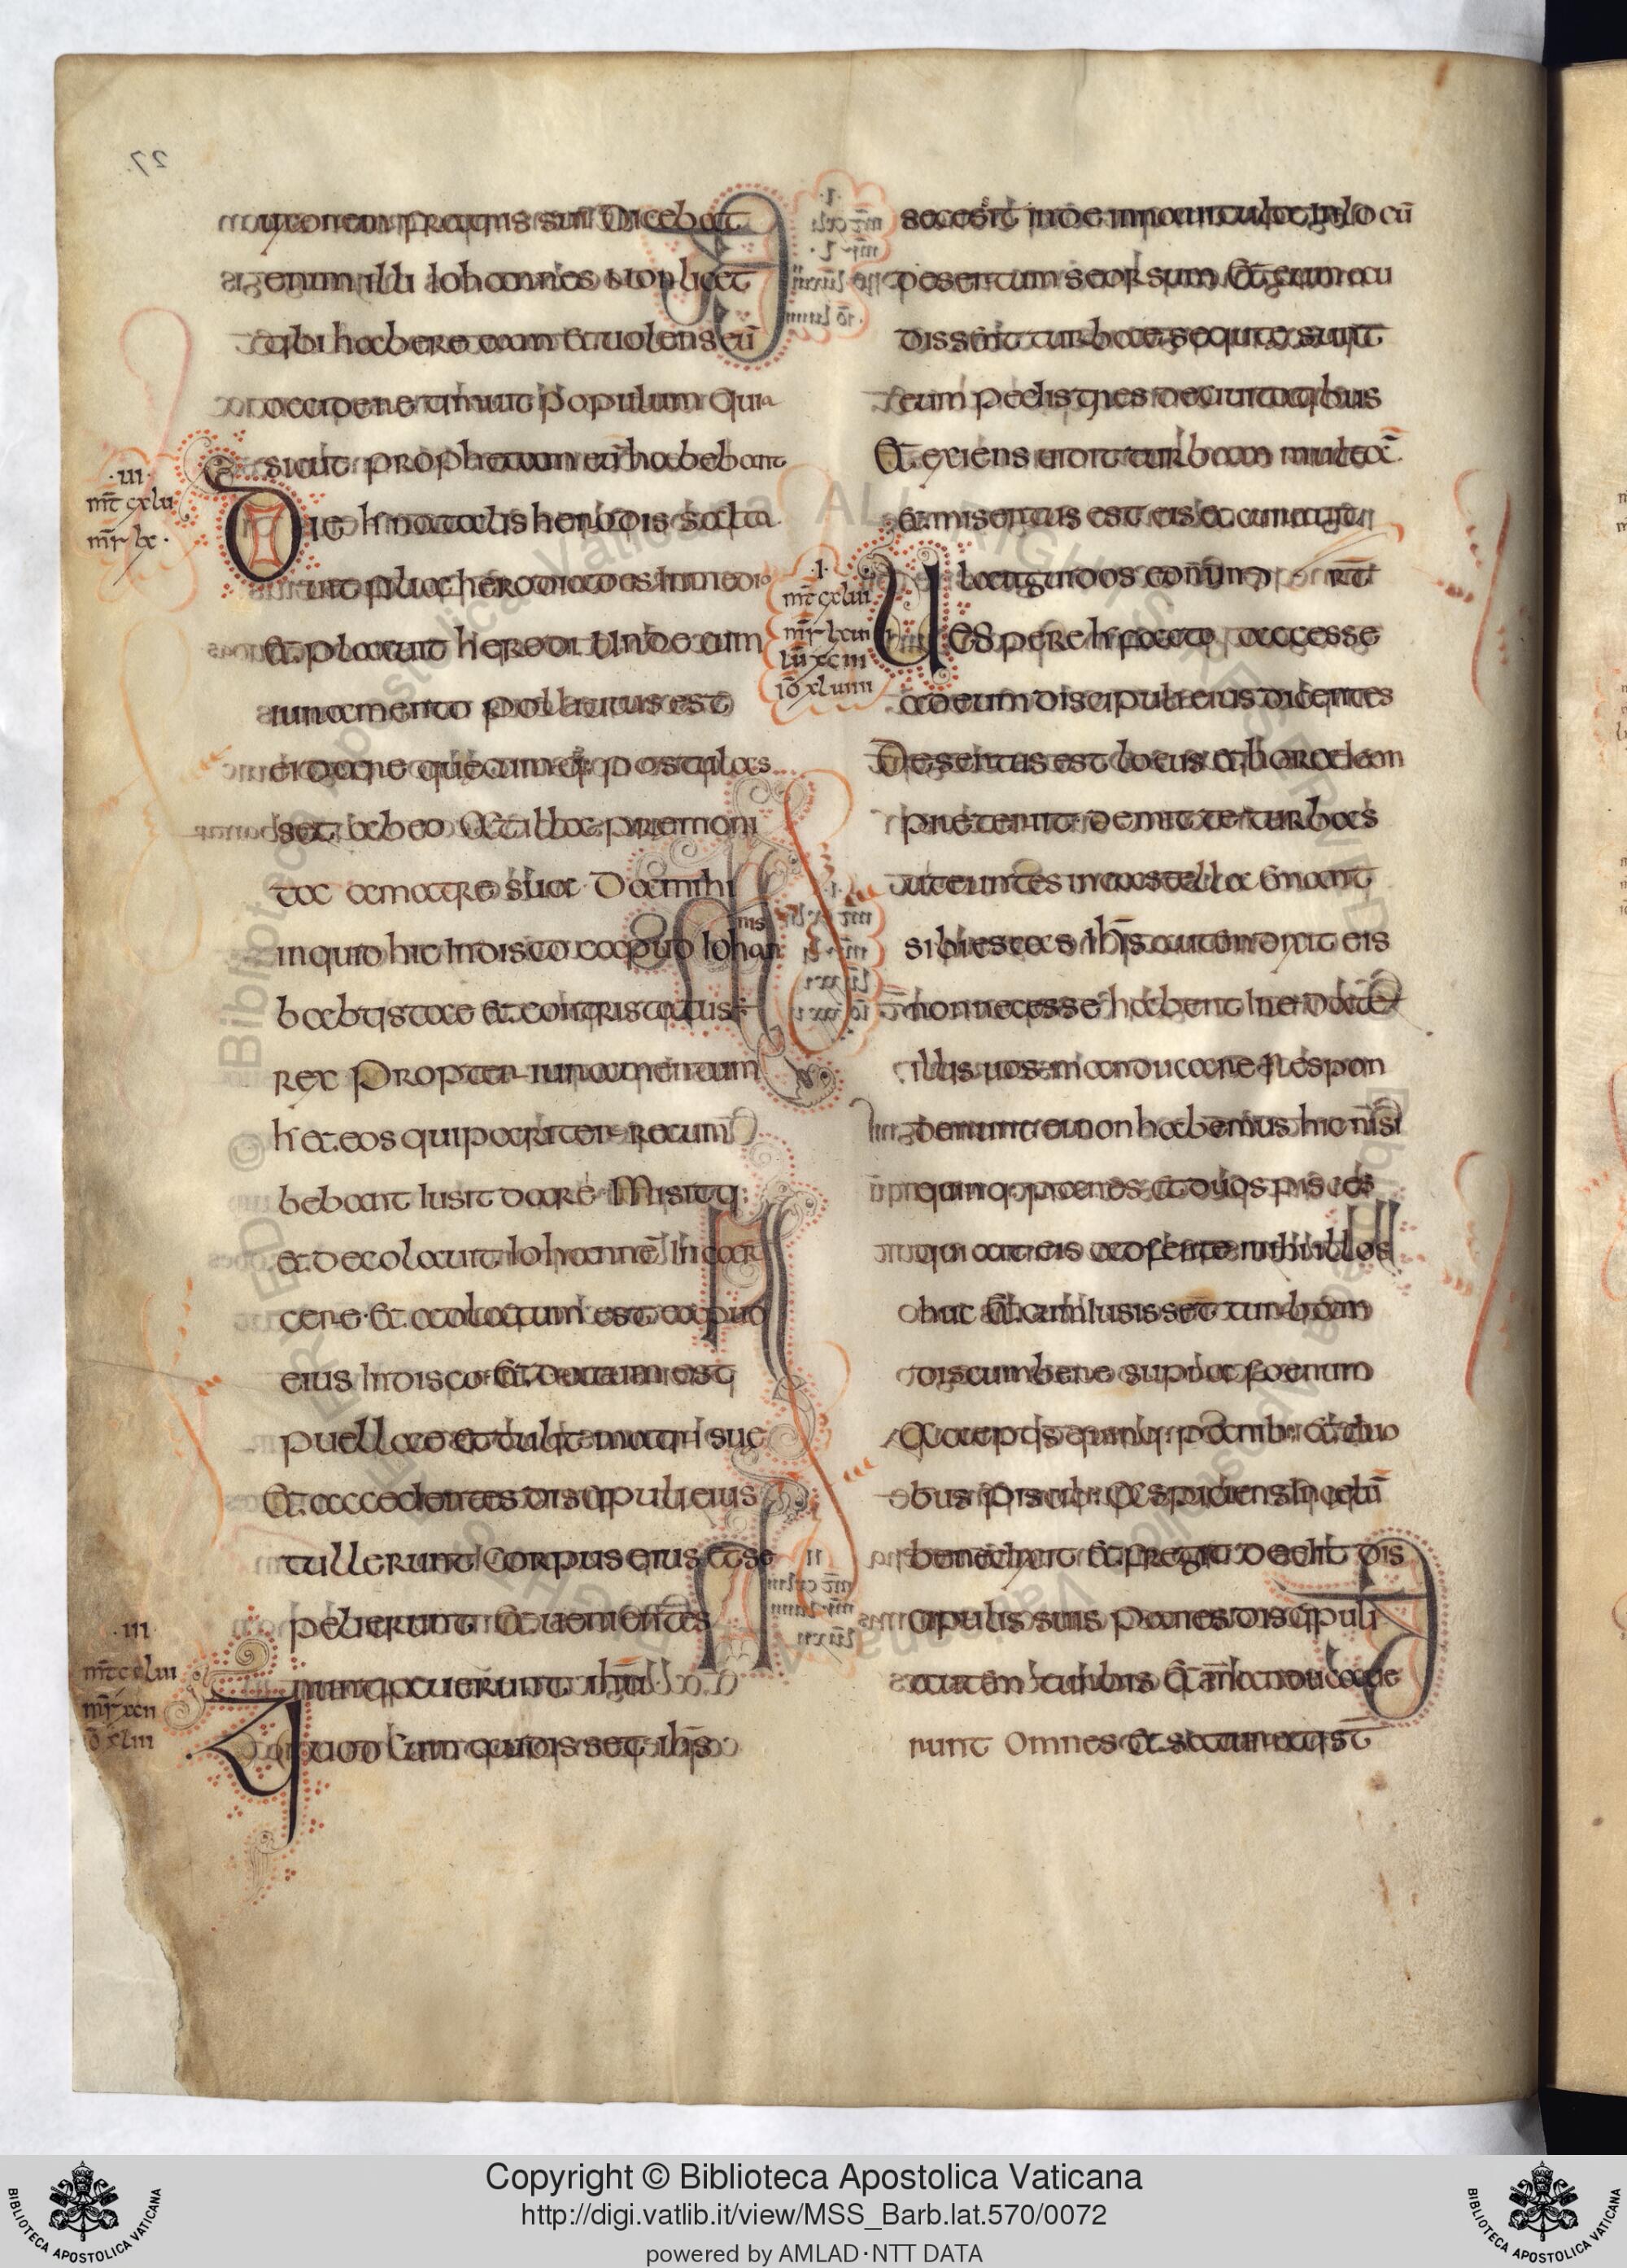 uxorem fratris sui Dicebat
enim illi Iohannes Non licet
tibi habere eam et uolens eū
occidere timuit populum quia
sicut prophetam eū habebant
Die natalis herodis salta
uit filia herodiadis In medio
Et placuit herodi Unde cum
iuramento pollicitus est
ei dare postulas
set abeo At illa premoni
ta a matre sua Da mihi
inquid hic In disco caput Iohannis
babtistae Et contristatus
rex Propter iuramentum
et eos qui pariter recum
bebant Iusit dare Misitq;
et decolauit Iohannē In car
cere Et adlatum est caput
eius In disco Et datum est
puellae et tulit matri suę
Et accedentes discipuli eius
tullerunt corpus eius et se
pelierunt Et uenientes
nuntiauerunt ihū
Quod Cum audisset ihs
·III·
mt cxlu
mr lx·
·III·
mt cxluı
mr xcıı
secesit inde in nauicula In locū
desertum seorsum Et cum au
dissent turbae secute sunt
eum pedistres de ciuitatibus
Et exiens uidit turbam multā
et misertus est eis et curauit
languidos eorum
·I·
mt cxluıı
mr lxııı
lū xcııı
iō xluııı
Uespere facto accesse
ad eum discipuli eius dicentes
Desertus est locus et hora iam
preteriit demitte turbas
ut euntes in castella emant
sibi escas ihs autem dixit eis
non necesse habent Ire Date
illis uos manducare Respon
derunt ei non habemus hic nisi
quinq; panes et duos pisces
qui ait eis adferte mihi illos
huc Et cum Iusisset turbam
discumbere supra foenum
Acceptis quinq; panib; et duo
bus piscib; Aspiciens In celū
benedixit Et fregit Dedit dis
cipulis suis panes discipuli
autem turbis Et manducaue
runt Omnes Et saturati sī
27
Copyright © Biblioteca Apostolica Vaticana
http://digi.vatlib.it/view/MSS_Barb.lat.570/0072
powered by AMLAD·NTT DATA
BIBLIOTECA APOSTOLICA VATICANA
BIBLIOTECA APOSTOLICA VATICANA